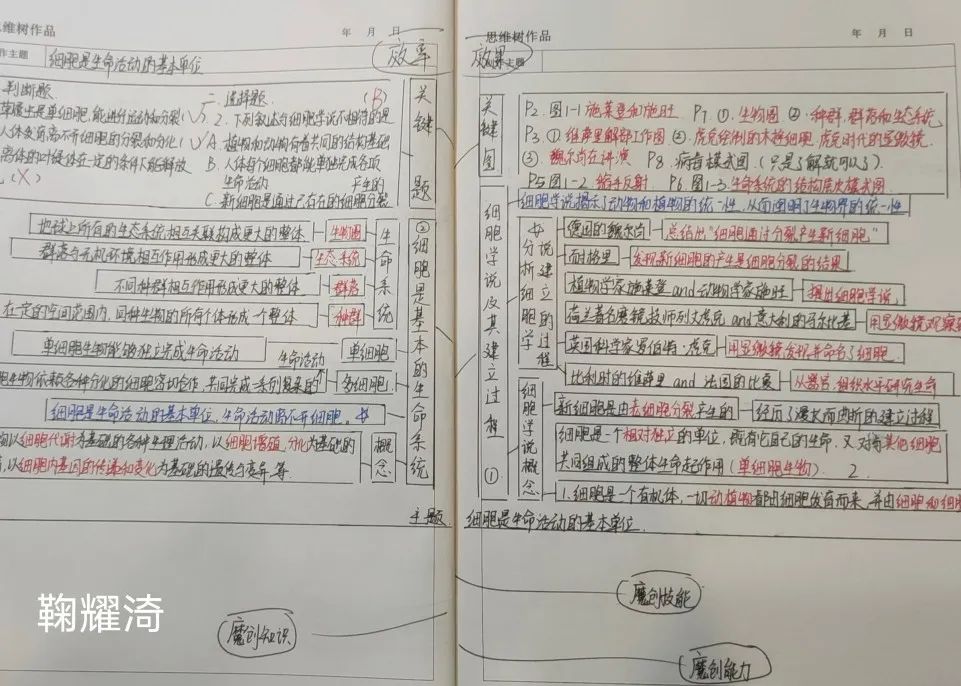 思维树作品
年 月 日
作主题 细胞是生命活动的基本单位
效率
判断题
草履虫是单细胞,能进行运动和分裂 ✓
人体发育离不开细胞的分裂和分化 ✓
离体的叶绿体在一定的条件下能释放
(×)
二.选择题 (B)
2.下列叙述与细胞学说不相符的是
A.植物和动物有着共同的结构基础
B.人体每个细胞都能单独完成各项
生命活动 产生的
C.新细胞是通过已存在的细胞分裂
关键题
地球上所有的生态系统相互关联构成更大的整体 生物圈
群落与无机环境相互作用形成更大的整体 生态系统
不同种群相互作用形成更大的整体 群落
在一定的空间范围内,同种生物的所有个体形成一个整体 种群
生命系统
单细胞生物能够独立完成生命活动 生命活动 单细胞
胞生物依赖各种分化的细胞密切合作,共同完成一系列复杂的 多细胞
细胞是生命活动的基本单位,生命活动离不开细胞。
物以细胞代谢为基础的各种生理活动,以细胞增殖,分化为基础的
,以细胞内基因的传递和变化为基础的遗传与变异等.
概念
②细胞是基本的生命系统
主题
鞠耀渏
魔创知识
思维树作品
年 月 日
效果
作主题
关键图
P2.图1-1施莱登和施旺 P7.①.生物圈 ②.种群,群落和生态系统
P3.①维萨里解剖工作图 ②.虎克绘制的木栓细胞,虎克时代的显微镜
③.魏尔肖在讲演 P8.病毒模式图(只是了解就可以了).
P5图1-2.缩手反射 P6.图1-3.生命系统的结构层次模式图.
细胞学说揭示了动物和植物的统一性,从而阐明了生物界的统一性
德国的魏尔肖 总结出"细胞通过分裂产生新细胞"
耐格里 发现新细胞的产生是细胞分裂的结果
植物学家施莱登and动物学家施旺 提出细胞学说,
荷兰著名磨镜技师列文虎克and意大利的马尔比基 用显微镜观察
英国科学家罗伯特·虎克 用显微镜发现并命名了细胞.
比利时的维萨里and法国的比夏 从器官,组织水平研究生命
分析细胞学说建立的过程
新细胞是由老细胞分裂产生的 经历了漫长而曲折的建立过程
细胞是一个相对独立的单位,既有它自己的生命,又对与其他细胞
共同组成的整体生命起作用(单细胞生物). 2
1.细胞是一个有机体,一切动植物都由细胞发育而来,并由细胞和细胞
细胞学说概念
细胞学说及其建立过程①
细胞是生命活动的基本单位
魔创技能
魔创能力